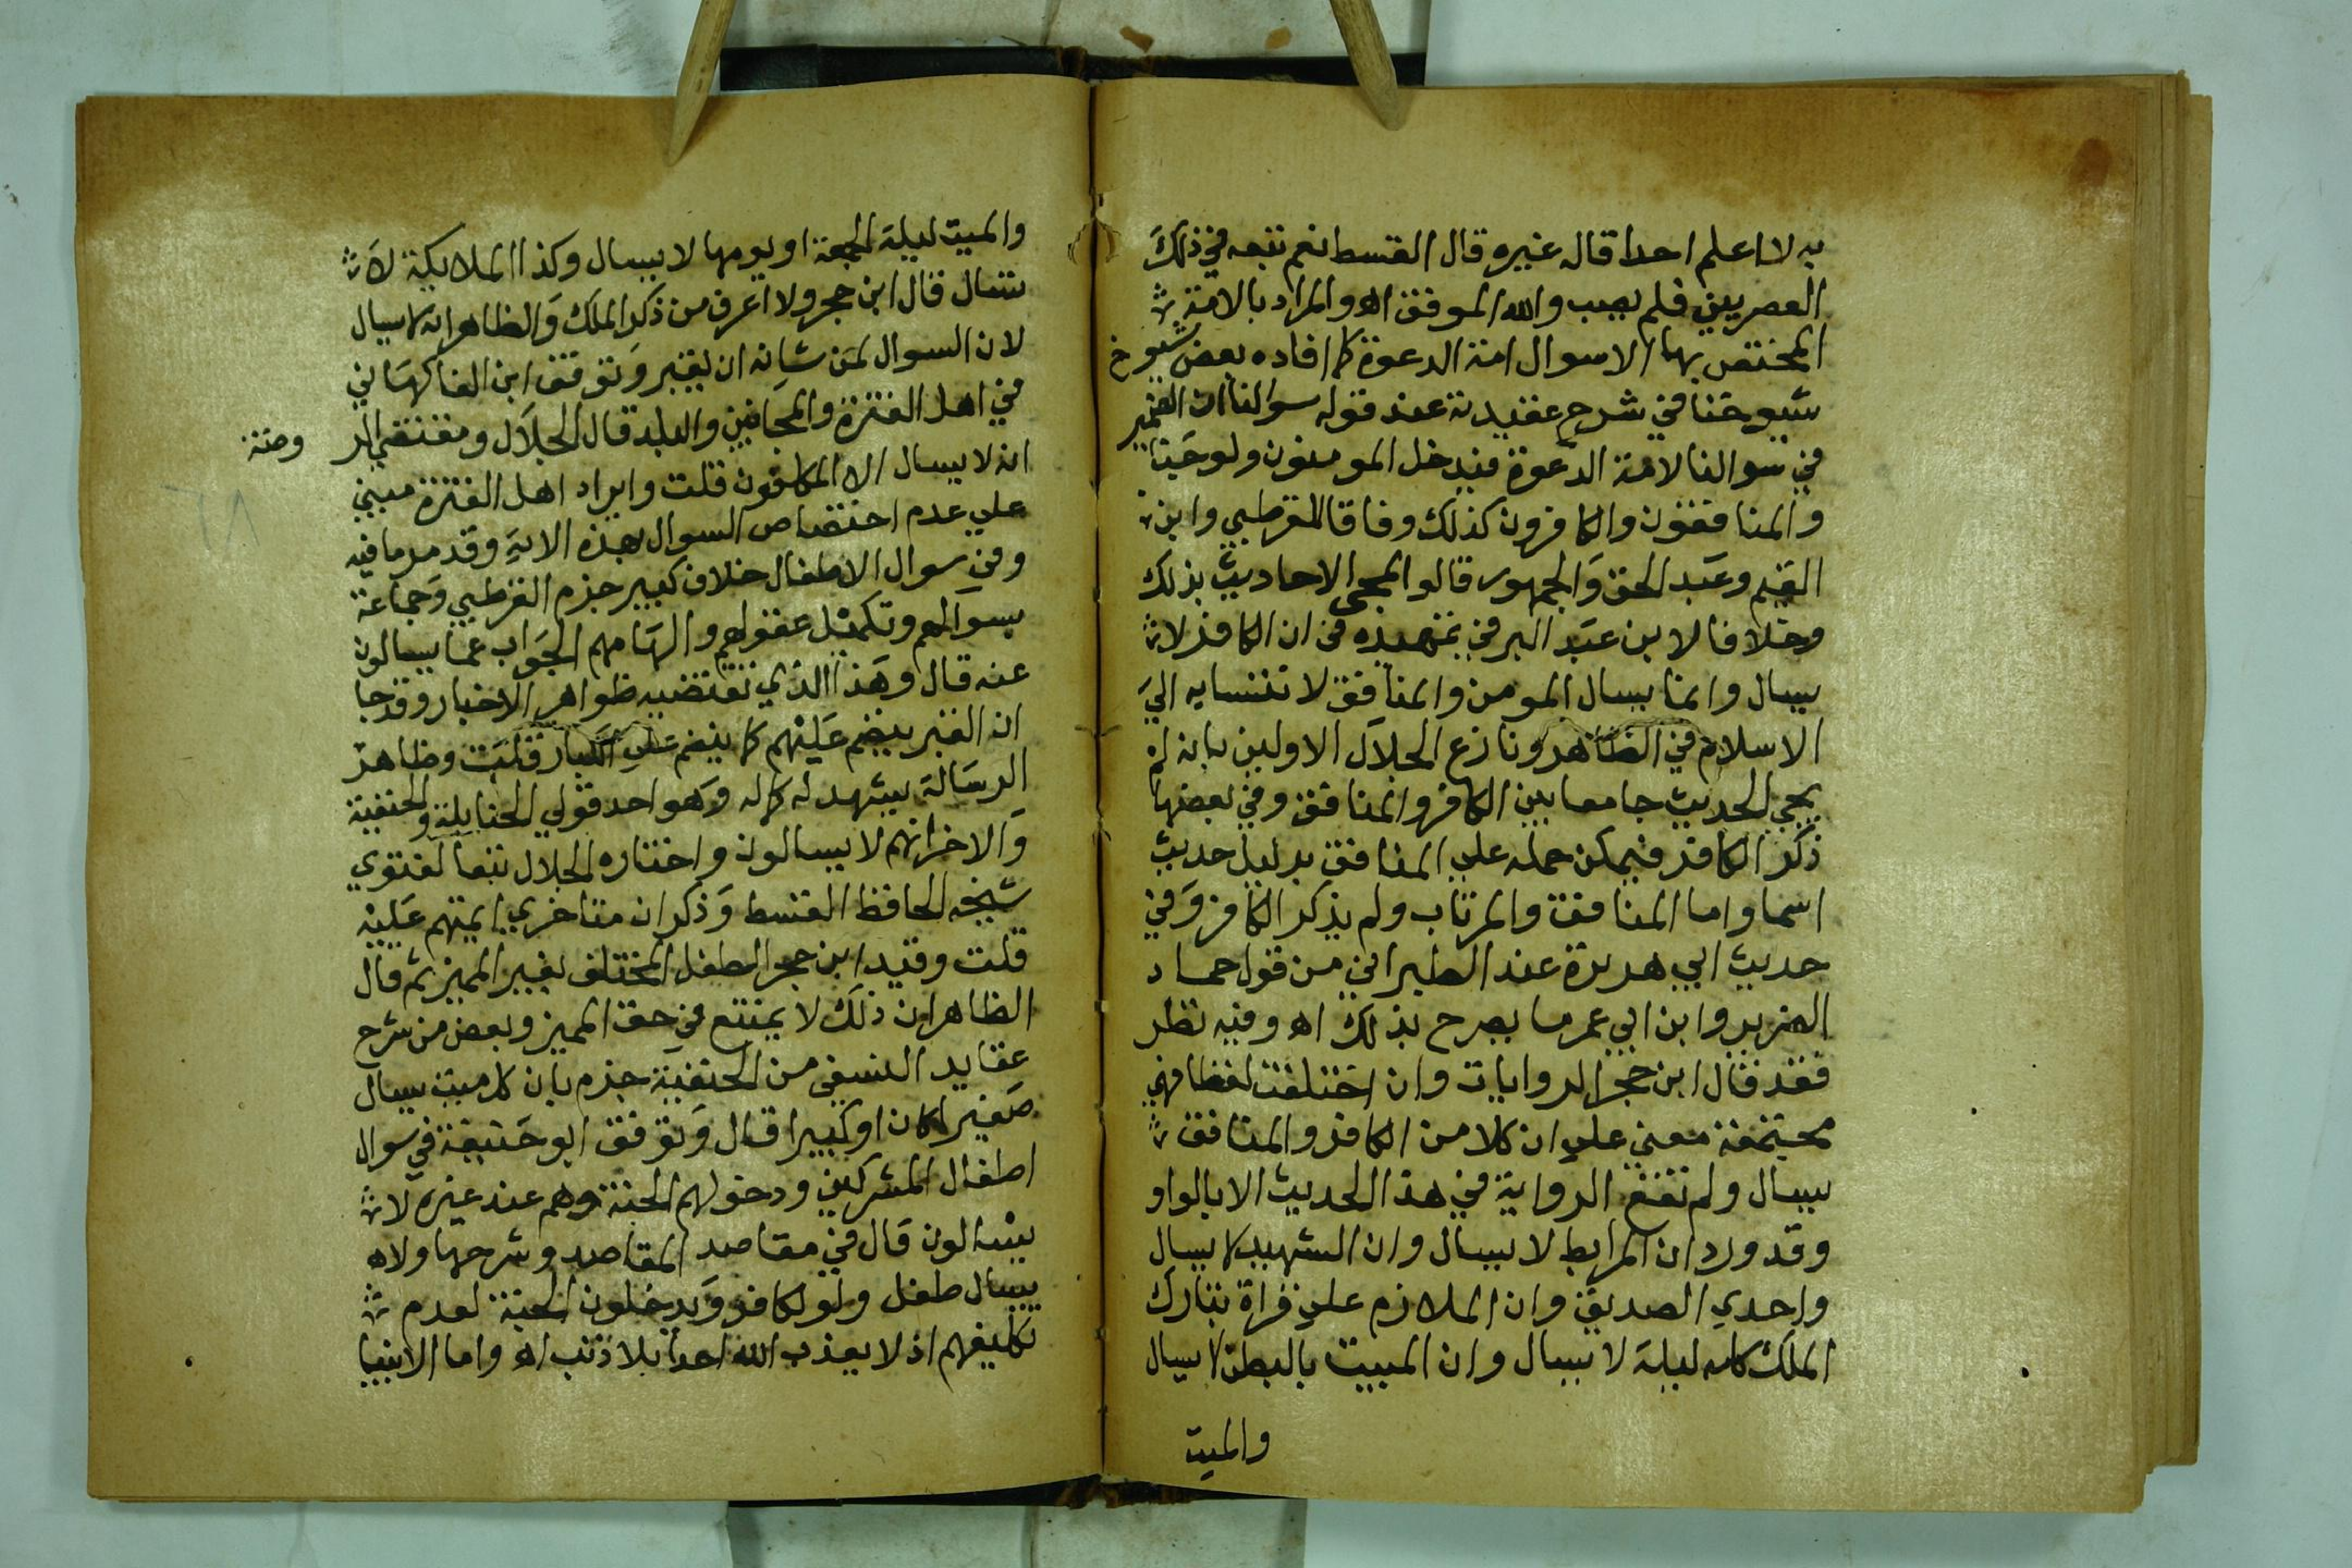 به لا اعلم احدا قاله غيره وقال القسط نعم تبعه في ذلك
العصريين فلم يصب والله الموفق اه والمراد بالامة
المختص بها السوال امة الدعوة كما افاده بعض شيوخ
شيوخنا في شرح عقيدته عند قوله سوالنا ان الضمير
في سوالنا لامة الدعوة فيدخل المومنون ولو جنا
والمنافقون والكافرون كذلك وفاقا للقرطبي وابن
القيم وعبد الحق والجمهور قالوا لمجي الاحاديث بذلك
وخلافا لابن عبد البر في تمهيده في ان الكافر لا
يسال وانما يسال المومن والمنافق لانتسابه الي
الاسلام في الظاهر ونازع الجلال الاولين بانه لم
يجي الحديث جامعا بين الكافر والمنافق وفي بعضها
ذكر الكافر فيمكن حمله علي المنافق بدليل حديث
اسما واما المنافق والمرتاب ولم يذكر الكافر وفي
حديث ابي هريرة عند الطبراني من قول حماد
الضرير وابن ابي عمر ما يصرح بذلك اه وفيه نظر
فقد قال ابن حجر الروايات وان اختلفت لفظا فهي
مجتمعة معني علي ان كلا من الكافر والمنافق
يسال ولم تقع الرواية في هذا الحديث الا بالواو
وقد ورد ان المرابط لا يسال وان الشهيد لا يسال
واحدي الصديق وان الملازم علي قراة تبارك
الملك كل ليلة لا يسال وان الميت بالبطن لا يسال
والميت
والميت ليلة الجمعة او يومها لا يسال وكذا الملايكة لا
تسال قال ابن حجر ولا اعرف من ذكر الملك والظاهر انه لا يسال
لان السوال لمن شانه ان يقبر وتوقف ابن الفاكهاني
في اهل الفترة والمجانين والبله قال الجلال ومقتضي الر وضة
انه لا يسال الا المكلفون قلت وايراد اهل الفترة مبني
علي عدم اختصاص السوال بهذه الامة وقد مر ما فيه
وفي سوال الاطفال خلاف كبير جزم القرطبي وجماعة
بسوالهم وتكميل عقولهم والهامهم الجواب عما يسالون
عنه قال وهذا الذي تقتضيه ظواهر الاخبار وقد جا
ان القبر ينضم عليهم كما ينضم علي الكبار قلت وظاهر
الرسالة يشهد له وهو احد قولي الحنابلة والحنفية
والاخر انهم لا يسالون واختاره الجلال تبعا لفتوي
شيخه الحافظ القسط وذكر ان متاخري ايمتهم عليه
قلت وقيد ابن حجر الطفل المختلف بغير المميز ثم قال
الظاهر ان ذلك لا يمتنع في حق المميز وبعض من شرح
عقايد النسفي من الحنفية جزم بان كل ميت يسال
صغيرا كان او كبيرا قال وتوقف ابو حنيفة في سوال
اطفال المشركين ودخولهم الجنة وهم عند غيره لا
يسالون قال في مقاصد المقاصد وشرحها ولا
يسال طفل ولو لكافر ويدخلون الجنة لعدم
تكليفهم اذ لا يعذب الله احدا بلا ذنب اه واما الانبيا